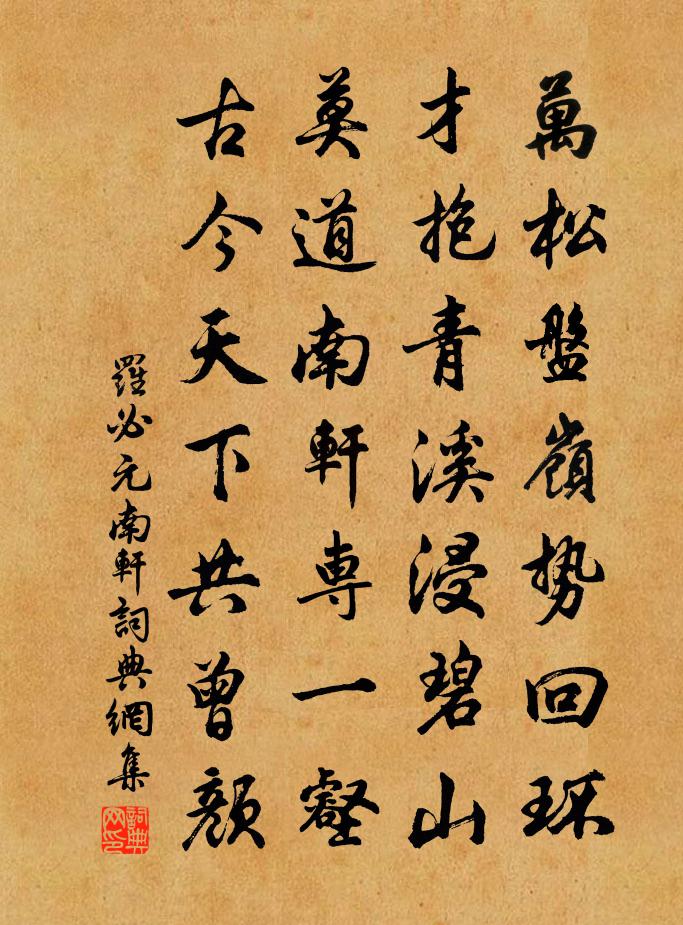 萬松盤嶺势回环
才抱青溪浸碧山
莫道南軒専一壑
古今天下共曾顔
羅必元南軒詞典網集
詞典网印